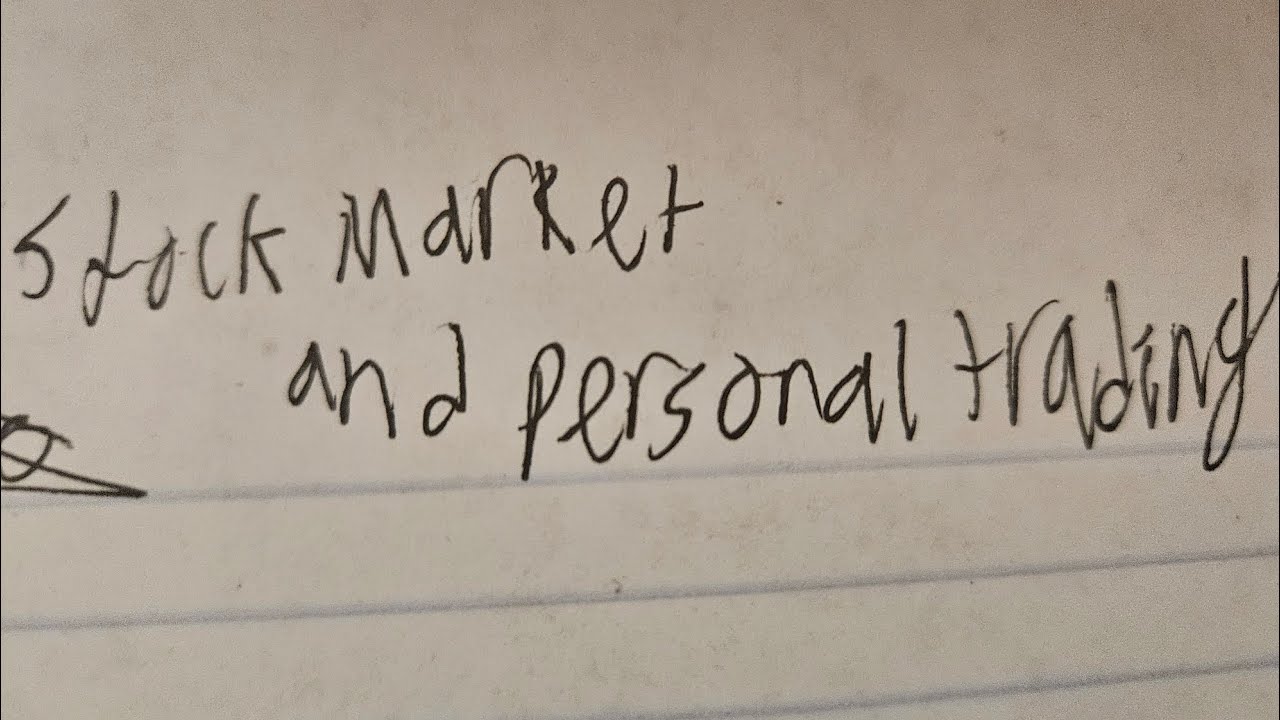 Stock Market
and personal trading